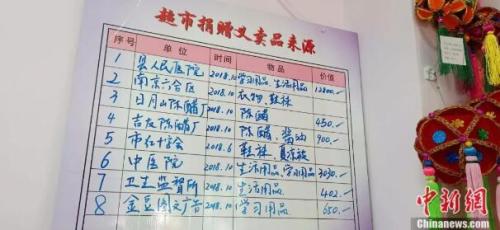 超市捐赠义卖品来源
序号 单位 时间 物品 价值
1 县人民医院 2018.10 学习用品、生活用品 12800.—
2 南京六合区 2018.10 衣物、鞋袜
3 日月山陈醋厂 2018.10 陈醋 450.—
4 吉友陈醋厂 2018.10 陈醋、酱油 900.—
5 市红十字会 2018.6 鞋袜、夏凉被
6 中医院 2018.10 生活用品、学习用品 3030.—
7 卫生监督所 2018.10 生活用品 402.—
8 金豆图文广告 2018.10 学习用品 650.—
中新网
Chinanews.com